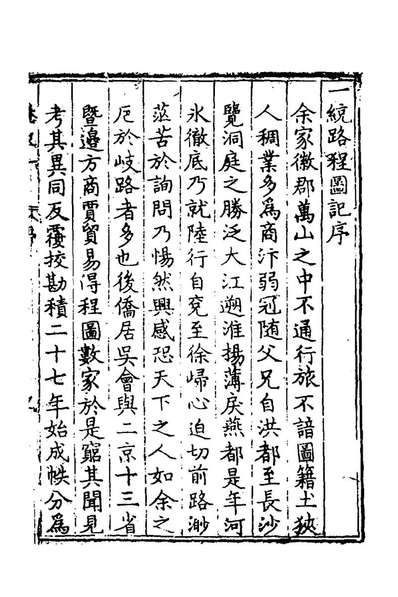 一統路程圖記序
余家徽郡萬山之中不通行旅不諳圖籍土狹
人稠業多為商汴弱冠隨父兄自洪都至長沙
覽洞庭之勝泛大江溯淮揚薄戾燕都是年河
氷徹底乃就陸行自兖至徐歸心迫切前路渺
茫苦於詢問乃惕然興感恐天下之人如余之
厄於岐路者多也後僑居吳會與二京十三省
暨邉方商賈貿易得程圖數家於是窮其聞見
考其異同反覆挍勘積二十七年始成帙分為